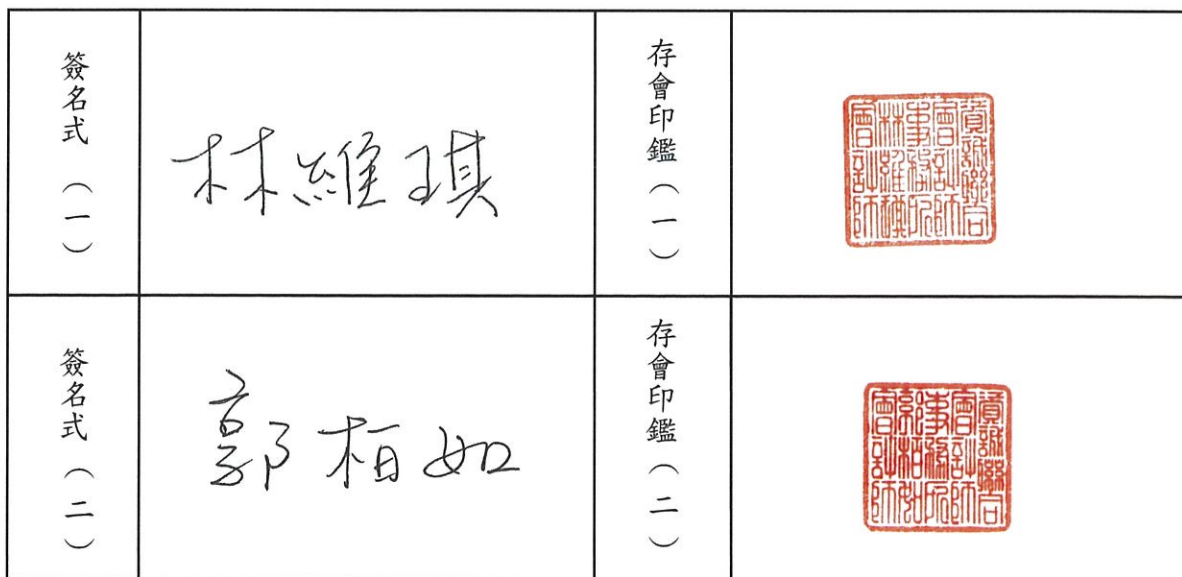 簽名式（一）
林維琪
存會印鑑（一）
資誠聯合
會計師
事務所
林維琪
會計師
簽名式（二）
郭柏如
存會印鑑（二）
資誠聯合
會計師
事務所
郭柏如
會計師